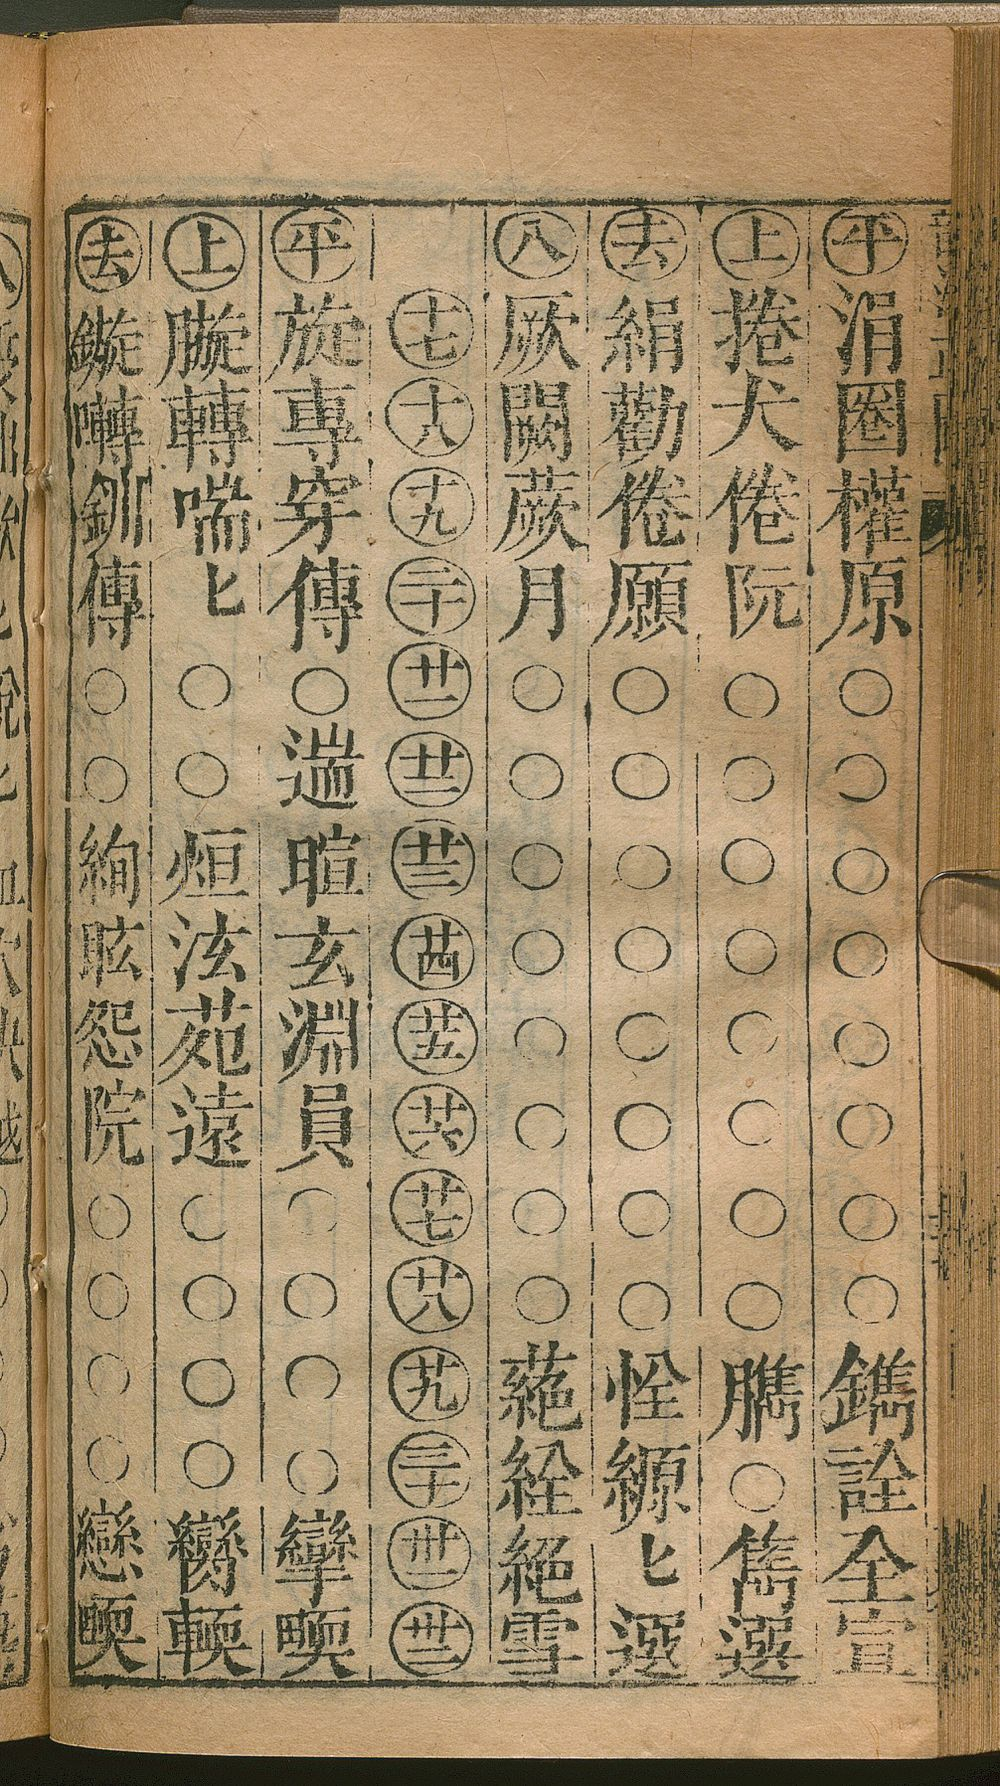 平涓圈權原○○○○○○○○鐫詮全宣
上捲犬倦阮○○○○○○○○臇○雋選
去絹勸倦願○○○○○○○○恮縓𠤎選
入厥闕蕨月○○○○○○○○蕝絟絕雪
十七十八十九二十廿一廿二廿三廿四廿五廿六廿七廿八廿九三十卅一卅二
平旋專穿傳○遄暄玄淵員○○○○攣㬉
上䁢轉喘𠤎○○烜泫苑遠○○○○臠輭
去鏇囀釧傳○○絢眩怨院○○○○戀㬉